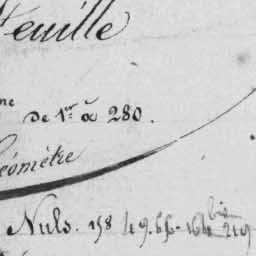 Feuille
me de 1er à 280.
Géomètre
Nuls. 158 49. 166 bis 219